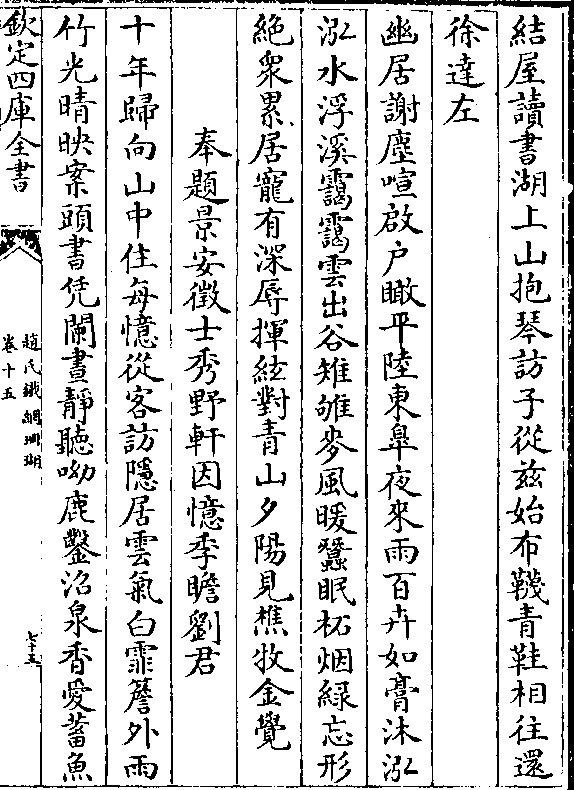 結屋讀書湖上山抱琴訪子從兹始布韈青鞋相往還
徐達左
幽居謝塵喧啟户瞰平陸東臯夜來雨百卉如膏沐泓
泓水浮溪靄靄雲出谷雉雊麥風暖蠶眠柘烟緑忘形
絶衆累居寵有深辱揮絃對青山夕陽見樵牧金覺
奉題景安徵士秀野軒因憶季瞻劉君
十年歸向山中住每憶從客訪隱居雲氣白霏簷外雨
竹光晴映案頭書凭闌晝靜聽呦鹿鑿沼泉香愛蓄魚
欽定四庫全書
趙氏鐵網珊瑚
卷十五
七十五